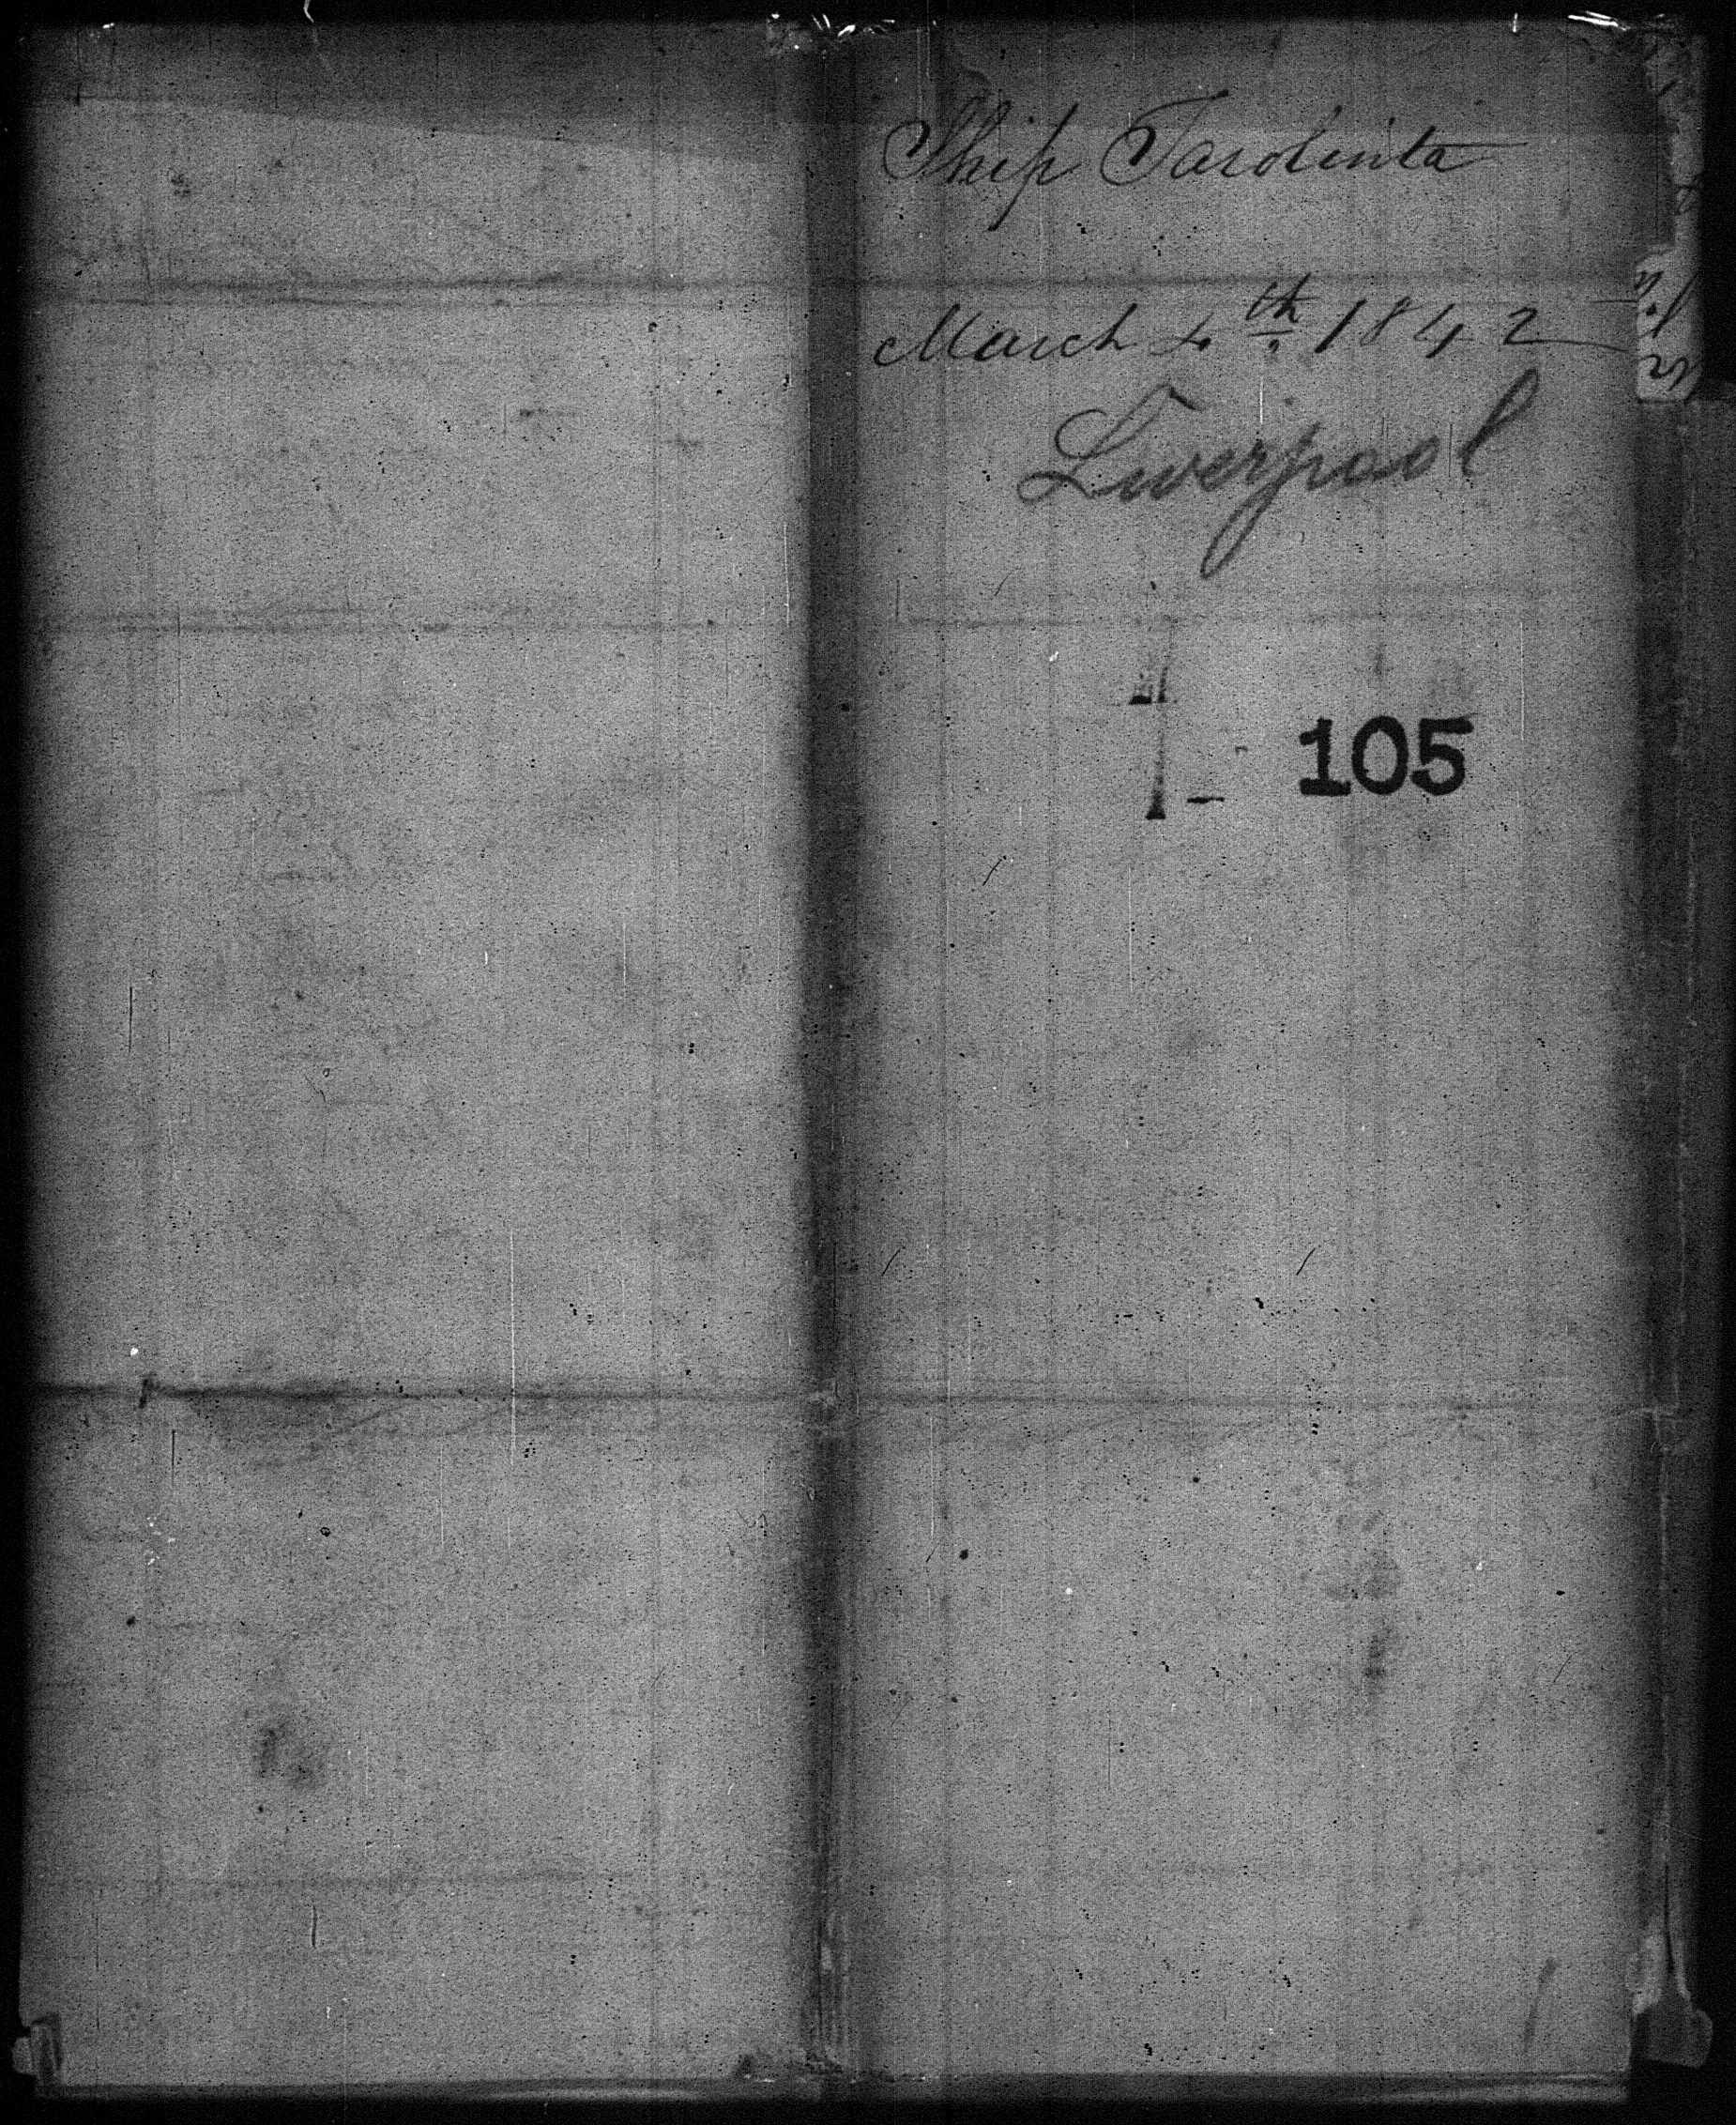 Ship Tarolinta
March 4th 1842
Liverpool
105